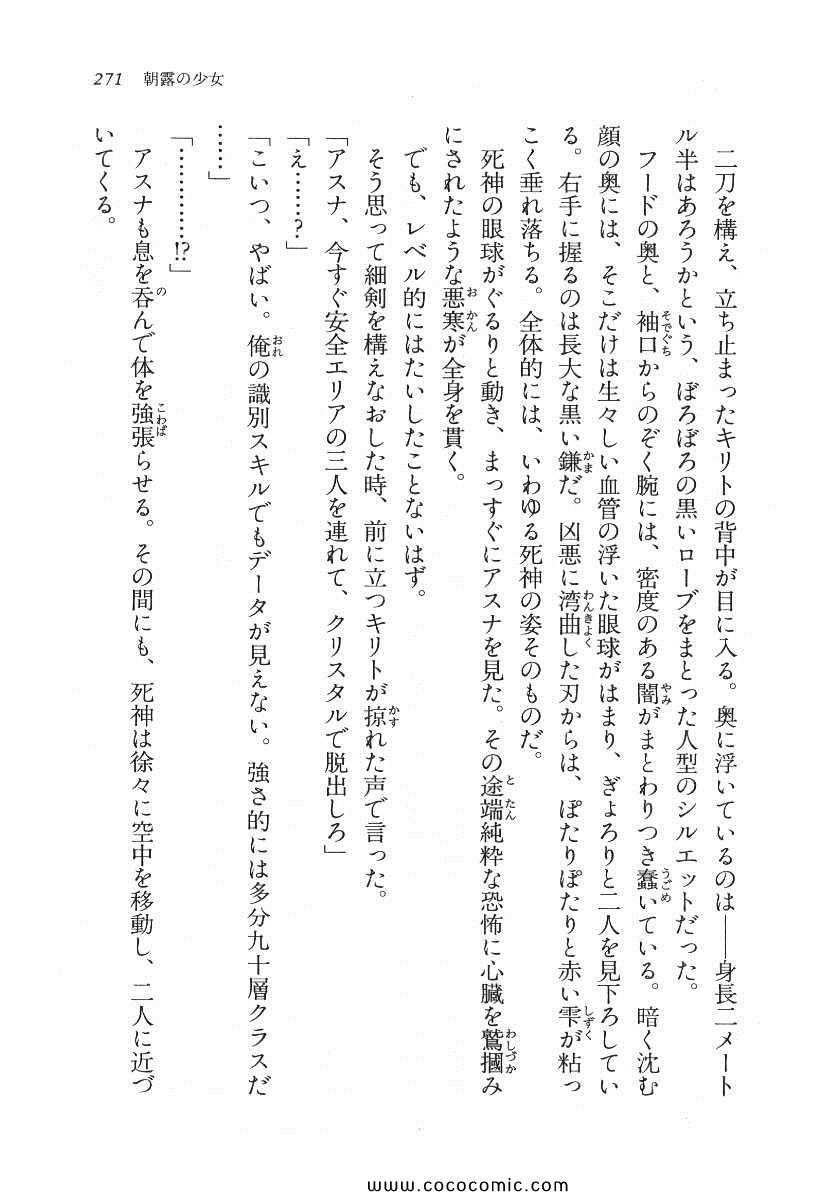 271 朝露の少女
二刀を構え、立ち止まったキリトの背中が目に入る。奥に浮いているのは――身長二メート
ル半はあろうかという、ぼろぼろの黒いローブをまとった人型のシルエットだった。
フードの奥と、袖口からのぞく腕には、密度のある闇がまとわりつき蠢いている。暗く沈む
顔の奥には、そこだけは生々しい血管の浮いた眼球がはまり、ぎょろりと二人を見下ろしてい
る。右手に握るのは長大な黒い鎌だ。凶悪に湾曲した刃からは、ぽたりぽたりと赤い雫が粘っ
こく垂れ落ちる。全体的には、いわゆる死神の姿そのものだ。
死神の眼球がぐるりと動き、まっすぐにアスナを見た。その途端純粋な恐怖に心臓を鷲摑み
にされたような悪寒が全身を貫く。
でも、レベル的にはたいしたことないはず。
そう思って細剣を構えなおした時、前に立つキリトが掠れた声で言った。
「アスナ、今すぐ安全エリアの三人を連れて、クリスタルで脱出しろ」
「え……？」
「こいつ、やばい。俺の識別スキルでもデータが見えない。強さ的には多分九十層クラスだ
……」
「…………!?」
アスナも息を呑んで体を強張らせる。その間にも、死神は徐々に空中を移動し、二人に近づ
いてくる。
www.cococomic.com